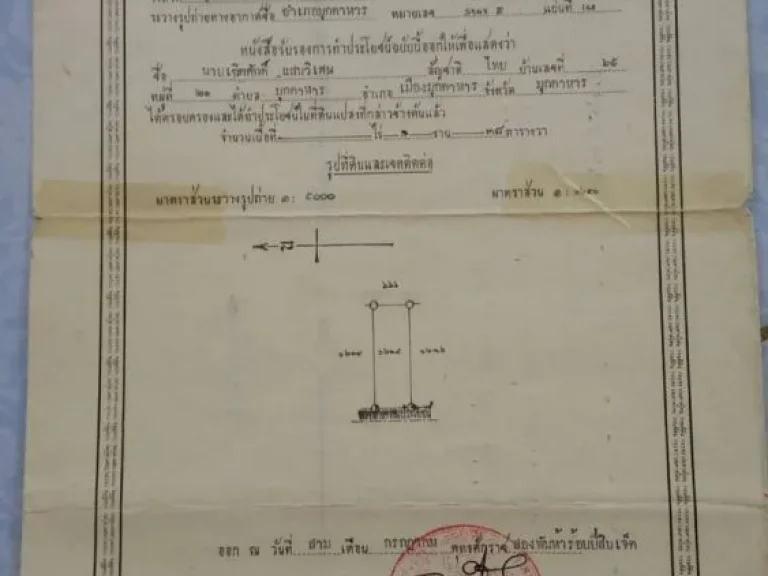 ระวางรูปถ่ายทางอากาศชื่อ อำเภอมุกดาหาร หมายเลข แผ่นที่
หนังสือรับรองการทำประโยชน์ฉบับนี้ออกให้เพื่อแสดงว่า
ชื่อ นายเจิดศักดิ์ แสนวิเศษ สัญชาติ ไทย บ้านเลขที่ ๖๕
หมู่ที่ ๒๑ ตำบล มุกดาหาร อำเภอ เมืองมุกดาหาร จังหวัด มุกดาหาร
ได้ครอบครองและได้ทำประโยชน์ในที่ดินแปลงที่กล่าวข้างต้นแล้ว
จำนวนเนื้อที่ ไร่ ๑ งาน ๓๘ ตารางวา
รูปที่ดินและเขตติดต่อ
มาตราส่วนระวางรูปถ่าย ๑ : ๕๐๐๐ มาตราส่วน ๑ :
น
๖๖๖
ออก ณ วันที่ สาม เดือน กรกฎาคม พุทธศักราช สองพันห้าร้อยยี่สิบเจ็ด